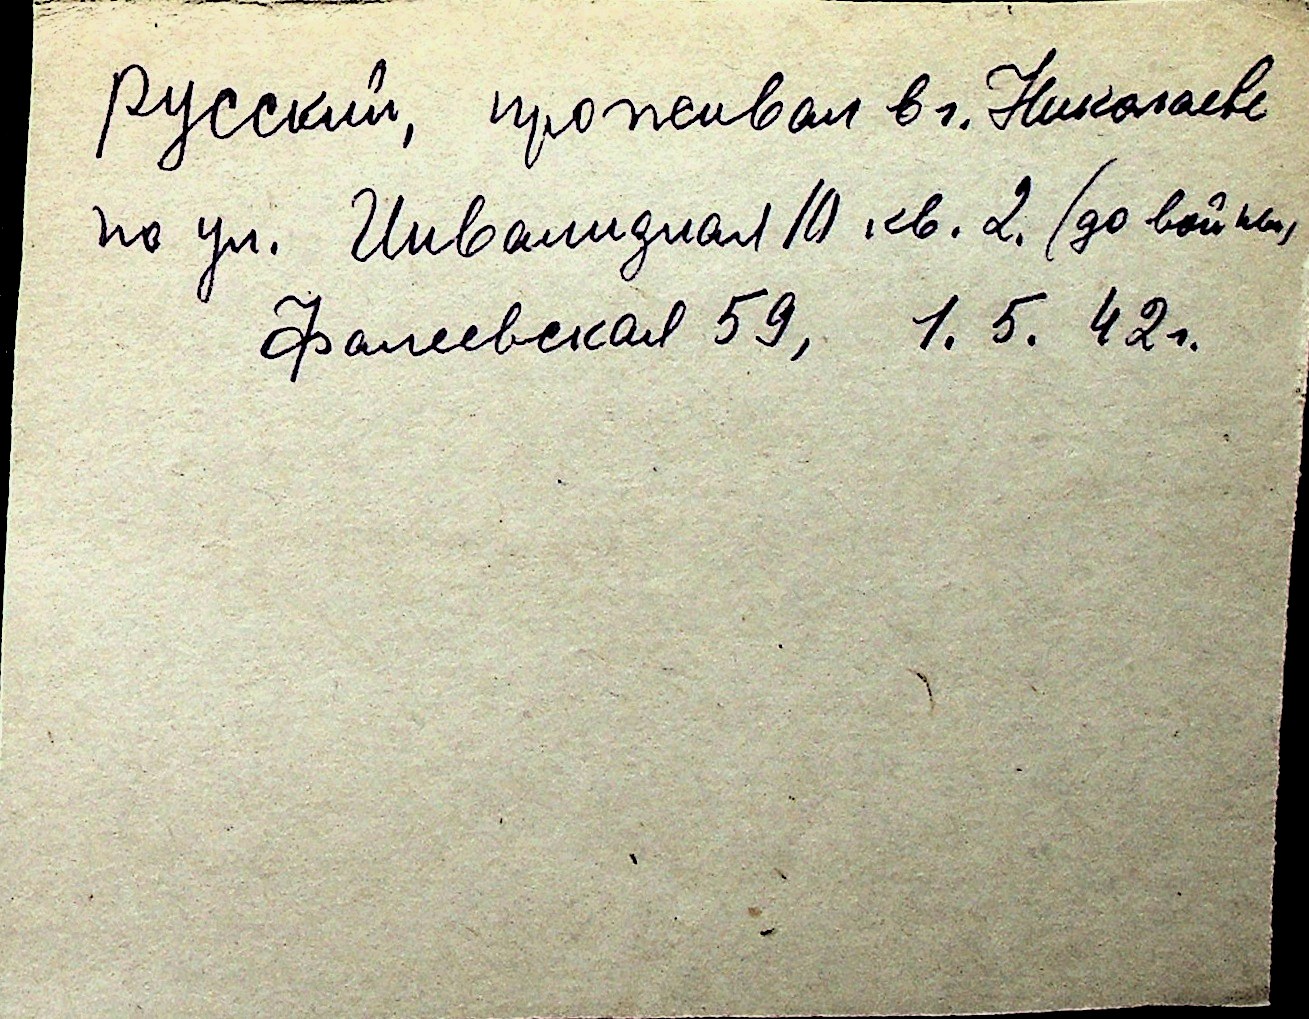 русский, проживал в г. Николаеве
по ул. Инвалидная 10 кв. 2. (до войны,
Фалеевская 59, 1. 5. 42 г.